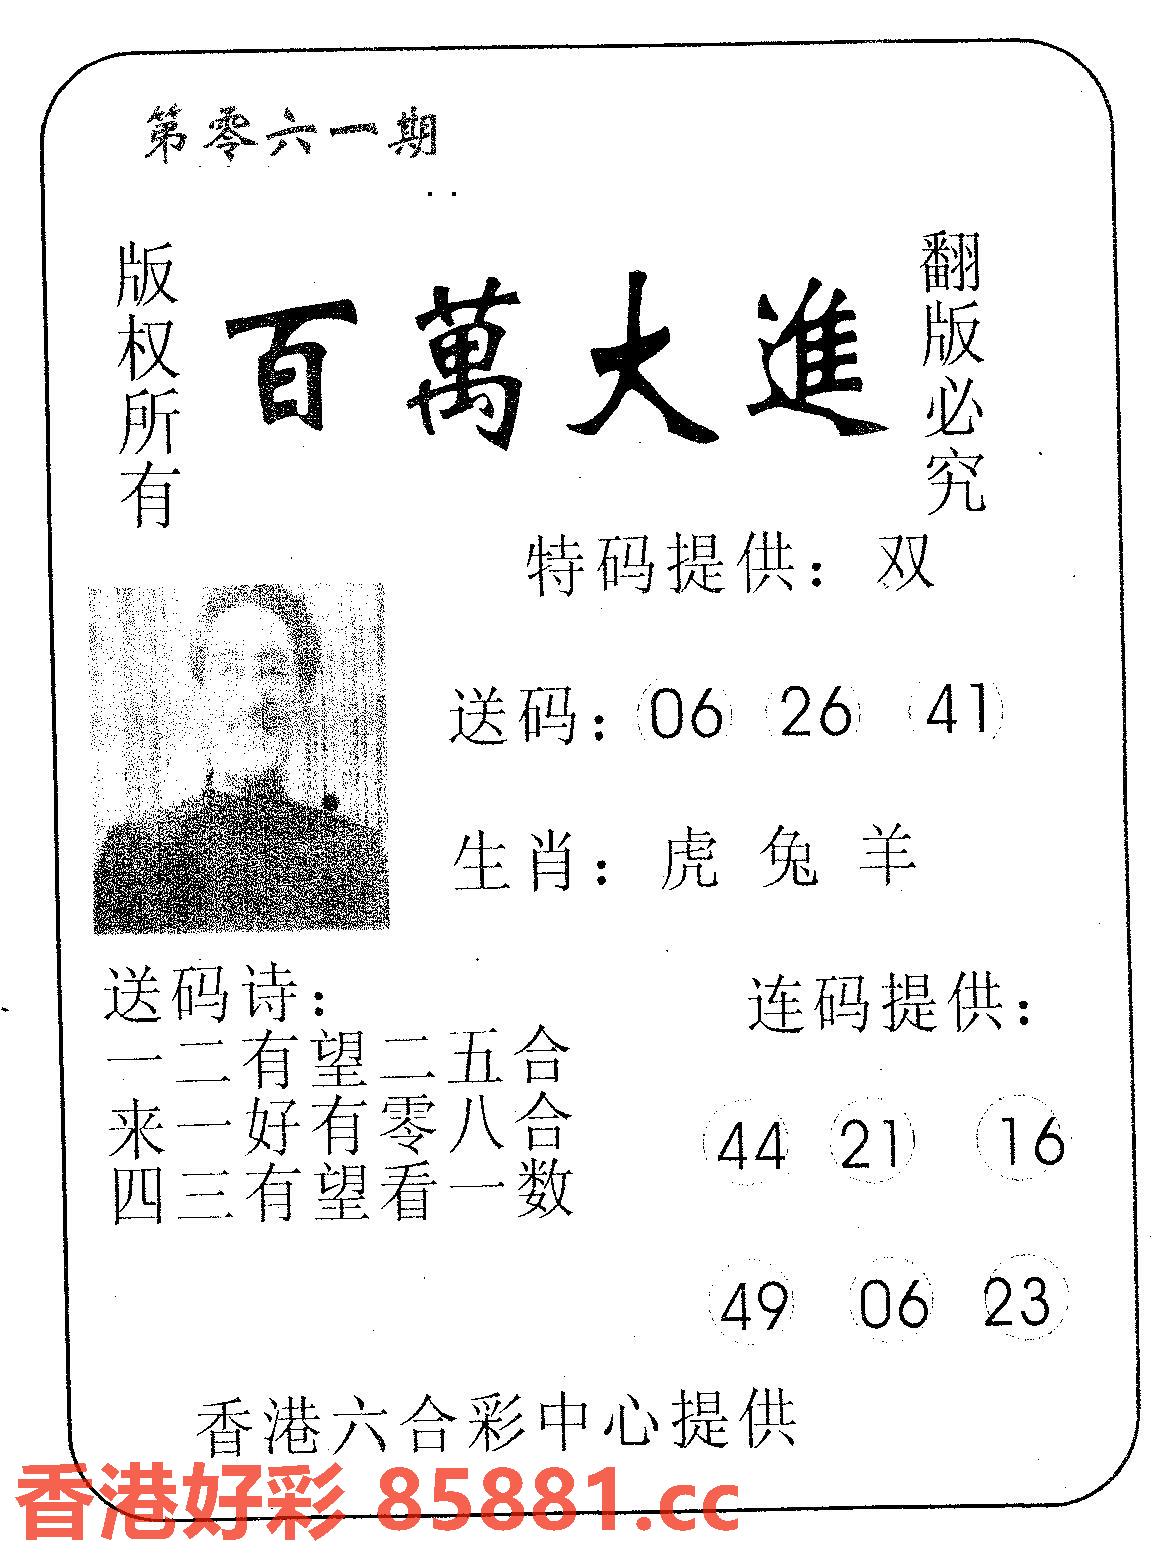 第零六一期
版权所有
百萬大進
翻版必究
特码提供：双
送码：06 26 41
生肖：虎 兔 羊
送码诗：
一二有望二五合
来一好有零八合
四三有望看一数
连码提供：
44 21 16
49 06 23
香港六合彩中心提供
香港好彩 85881.cc